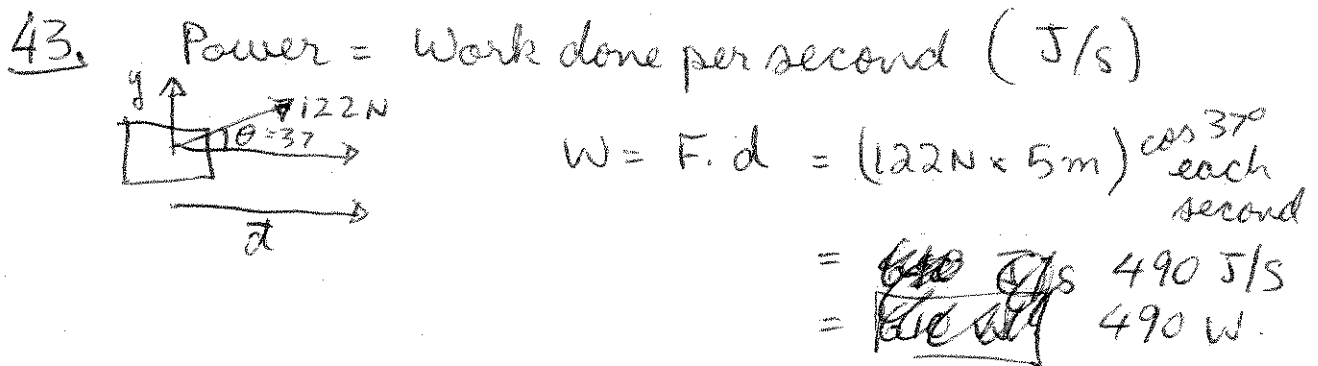 43. Power = Work done per second (J/s)
y
122N
θ=37
d
W = F.d = (122N × 5m) cos 37° each second
= J/s 490 J/s
= 490 W.